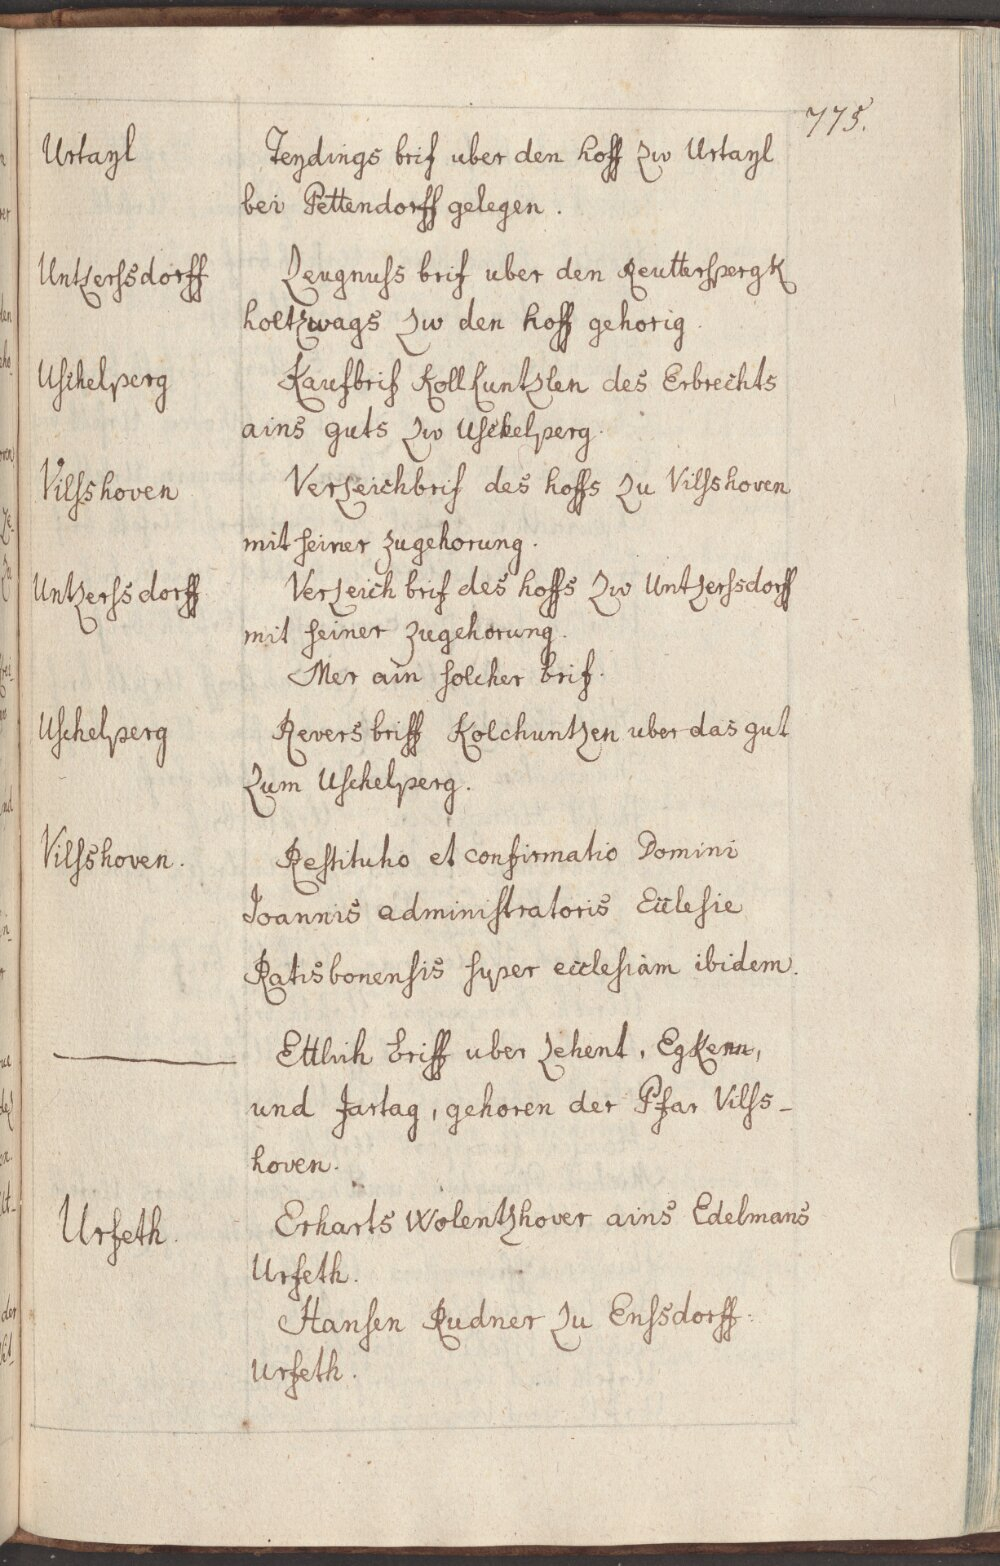 775.
Urtayl Teydings brif uber den hoff zw Urtayl
bei Pettendorff gelegen.
Untzerssdorff Zeugnuss brif uber den Reutterspergk
holtzwags zw den hoff gehorig.
Uschelperg Kaufbrif Kollkuntzlen des Erbrechts
ains guts zw Uschelperg.
Vilsshoven Verzeichbrif des hoffs zu Vilsshoven
mit seiner zugehorung.
Untzerssdorff Verzeich brif des hoffs zw Untzerssdorff
mit seiner zugehorung.
Mer ain solcher brif.
Uschelperg Revers briff Kolchuntzen uber das gut
zum Uschelperg.
Vilsshoven. Restitutio et confirmatio Domini
Joannis administratoris Ecclesie
Ratisbonensis super ecclesiam ibidem.
Ettlich briff uber zehent, Egkenn,
und Jartag, gehoren der Pfar Vilss-
hoven.
Urfeth. Erharts Wolentzhover ains Edelmans
Urfeth.
Hansen Rudner zu Enssdorff.
Urfeth.